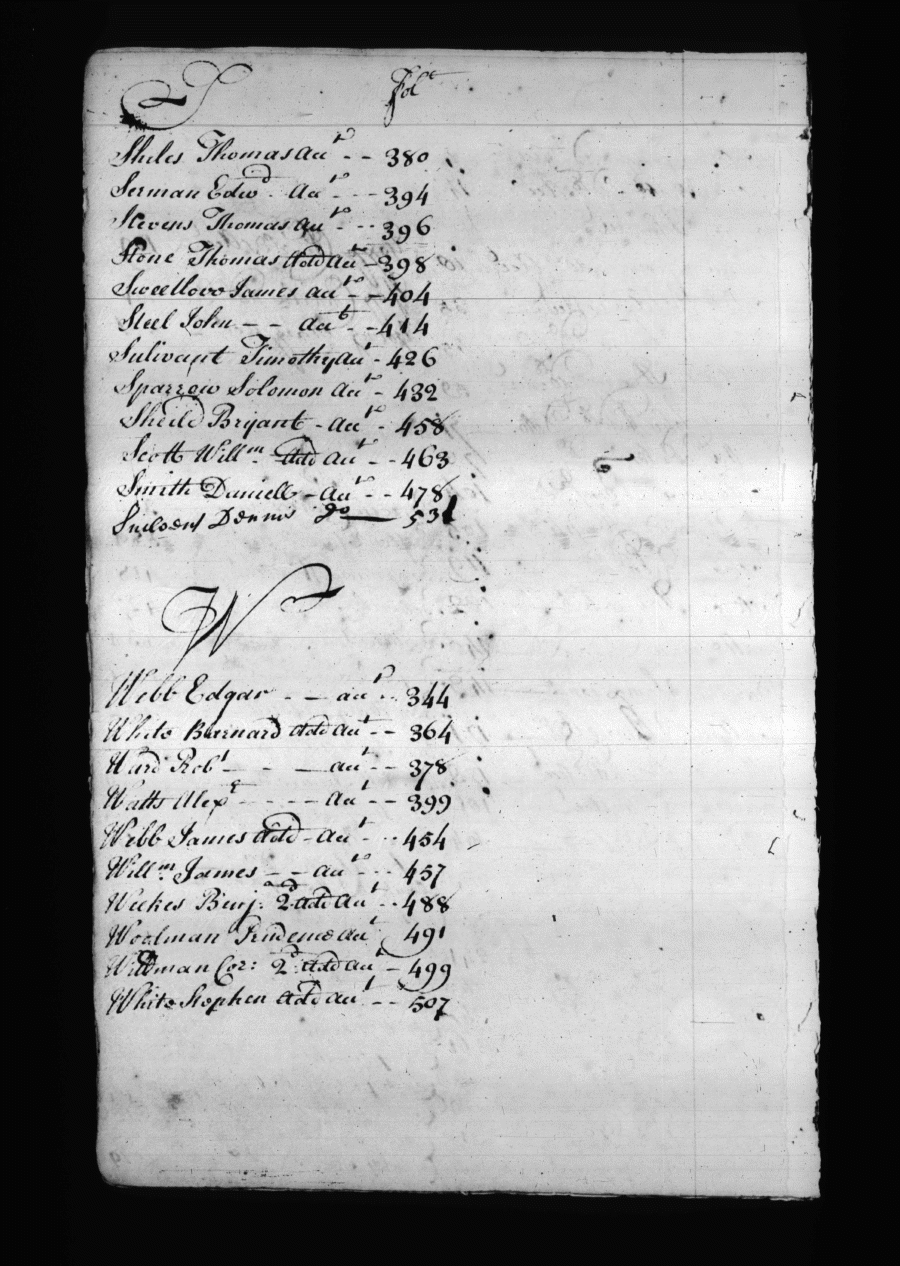 S Fol.
Shiles Thomas acct - - 380
Serman Edwd. acct - - - 394
Stevens Thomas acct - - - 396
Stone Thomas add acct - 398
Sweetlove James acct - - 404
Steel John - - acct - - 414
Sulivant Timothy act - 426
Sparrow Solomon acct - 432
Sheild Bryant - act - 458
Scott Willm. add act - - 463
Smith Daniell - act - - 478
Dennis Do — 531
W
Webb Edgar - - act - - 344
White Barnard add act - - 364
Ward Robt - - - act - - 378
Watts Alexr - - - - act - - 399
Webb James add - act - - - 454
Willm. James - - act - - - 457
Wickes Benj: 2d add act - - 488
Woolman Prudence act 491
Wildman Cor: 2d add act - 499
White Stephen add act - - 507